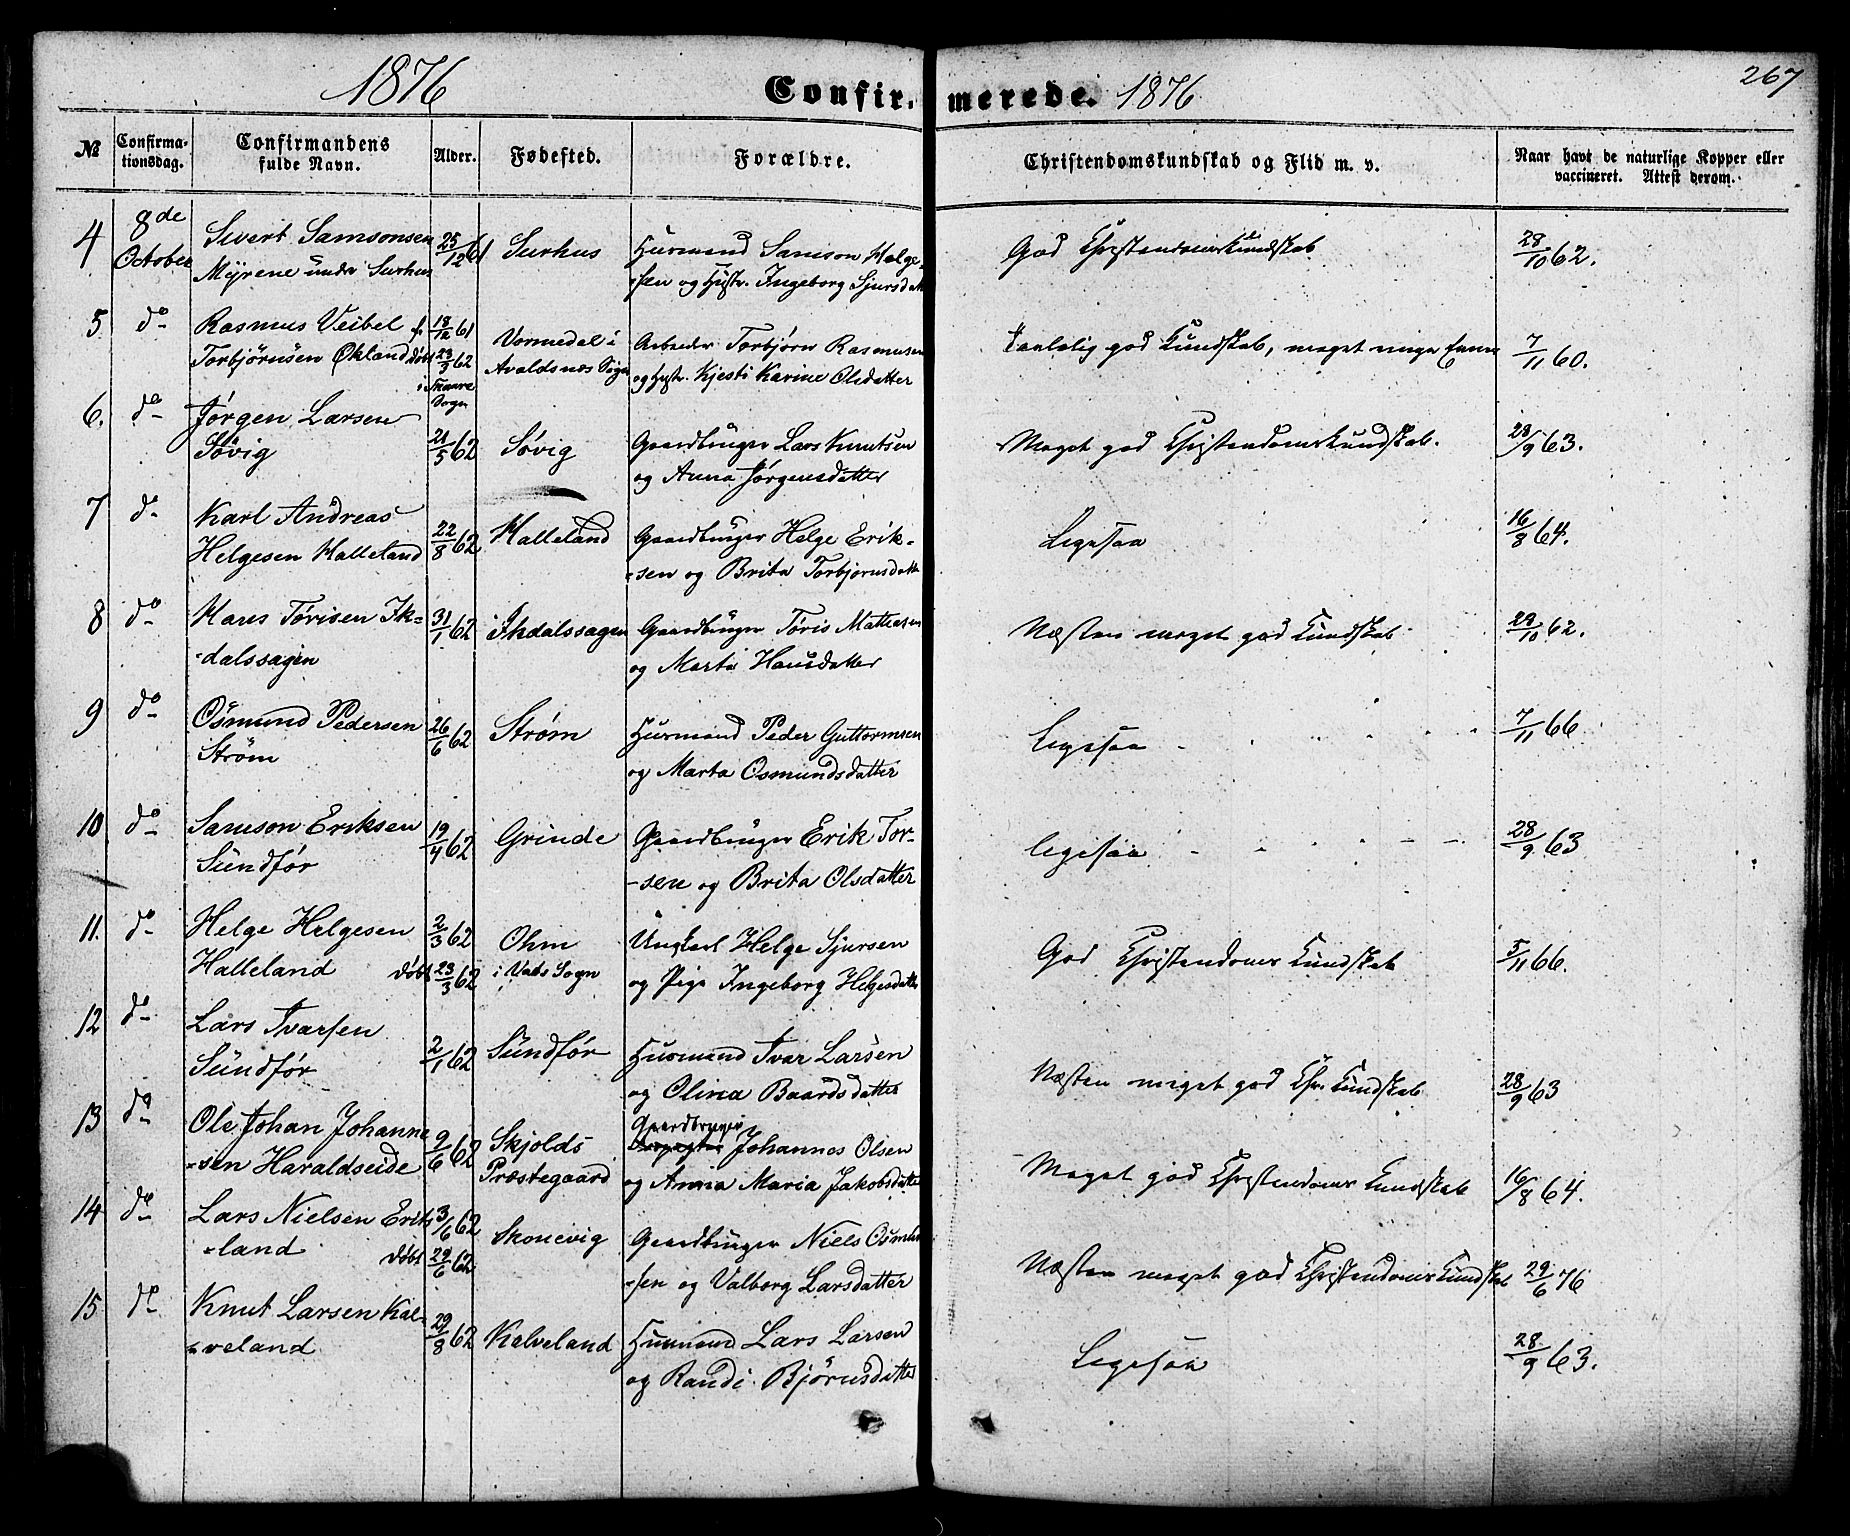 1876 Confir. merede. 1876 267
№ Confirma-tionsdag. Confirmandens fulde Navn. Alder. Fødested. Forældre. Christendomskundskab og Flid m. v. Naar havt de naturlige Kopper eller vaccineret. Attest derom.
4 8de October Sivert Samsonsen Myrene under Surhus 25/12 61 Surhus Husmand Samson Helge-sen og Hustr. Ingeborg Sjursdatt God Christendomskundskab 28/10 62.
5. do Rasmus Veibel Torbjørnsen Økland f. 18/12 61 døbt 23/3 62 i Skaare Sogn Vormedal i Avaldsnes Sogn Arbeider Torbjørn Rasmusen og Hustr. Kjesti Karine Olsdatter Taalelig god Kundskab, meget ringe Evner 7/11 60.
6. do Jørgen Larsen Søvig 21/5 62 Søvig Gaardbruger Lars Knutsen og Anna Jørgensdatter Meget god Christendomskundskab. 23/9 63.
7 do Karl Andreas Helgesen Halleland 22/8 62 Halleland Gaardbruger Helge Erik-sen og Brita Torbjørnsdatt Ligesaa 16/8 64.
8 do Hans Tørisen Ik-dalssagen 31/1 62 Ikdalssagen Gaardbruger Tøris Matiasen og Marta Hansdatter Næsten meget god Kundskab 23/10 62.
9 do Osmund Pedersen Strøm 26/6 62 Strøm Husmand Peder Guttormsen og Marta Osmundsdatter Ligesaa 7/11 66
10 do Samson Eriksen Sundfør 19/4 62 Grinde Gaardbruger Erik Tor-sen og Brita Olsdatter Ligesaa 28/9 63
11. do Helge Helgesen Halleland 2/3 62 døbt 23/3 62 Ohm i Vats Sogn Ungkarl Helge Sjursen og Pige Ingeborg Helgesdatter God Christendoms Kundskab 5/11 66.
12 do Lars Ivarsen Sundfør 2/1 62 Sundfør Husmand Ivar Larsen og Olina Baardsdatter Næsten meget god Chr. Kundskab 28/9 63
13 do Ole Johan Johanne-sen Haraldseide 9/6 62 Skjolds Præstegaard Gaardbruger Johannes Olsen og Anna Maria Jakobsdatter Meget god Christendoms Kundskab 16/8 64.
14 do Lars Nielsen Eriks-land 3/6 62 døbt 29/6 62 Skonevig Gaardbruger Niels Osmund-sen og Valborg Larsdatter Næsten meget god Christendomskundskab 29/6 76
15 do Knut Larsen Kal-veland 29/8 62 Kalveland Husmand Lars Larsen og Randi Bjørnsdatter Ligesaa 28/9 63.